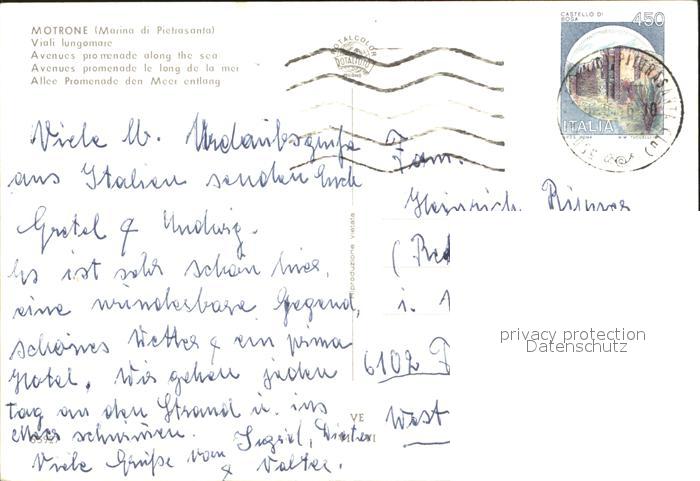 MOTRONE (Marina di Pietrasanta)
Viali lungomare
Avenues promenade along the sea
Avenues promenade le long de la mer
Allee Promenade den Meer entlang
CASTELLO DI BOSA
450
ITALIA
TOTALCOLOR
Viele lb. Urlaubsgrüße
aus Italien senden Euch
Gretel & Ludwig.
Es ist sehr schön hier,
eine wunderbare Gegend,
schönes Wetter & ein prima
Hotel. Wir gehen jeden
tag an den Strand u. ins
Meer schwimmen.
Viele Grüße von Ingrid, Dieter
& Valter.
Fam.
Heinrich
(Red
i.
6102
West
Riproduzione vietata
VE
privacy protection
Datenschutz